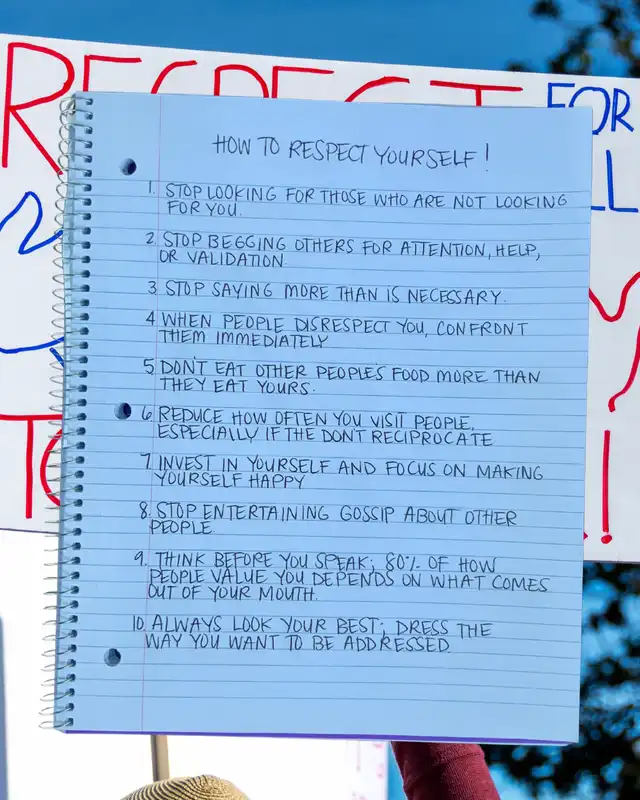 RESPECT FOR
LL
HOW TO RESPECT YOURSELF!
1. STOP LOOKING FOR THOSE WHO ARE NOT LOOKING
FOR YOU.
2. STOP BEGGING OTHERS FOR ATTENTION, HELP,
OR VALIDATION
3 STOP SAYING MORE THAN IS NECESSARY.
4 WHEN PEOPLE DISRESPECT YOU, CONFRONT
THEM IMMEDIATELY
5 DON'T EAT OTHER PEOPLE'S FOOD MORE THAN
THEY EAT YOURS.
6 REDUCE HOW OFTEN YOU VISIT PEOPLE,
ESPECIALLY IF THE DON'T RECIPROCATE
7. INVEST IN YOURSELF AND FOCUS ON MAKING
YOURSELF HAPPY
8. STOP ENTERTAINING GOSSIP ABOUT OTHER
PEOPLE.
9. THINK BEFORE YOU SPEAK; 80% OF HOW
PEOPLE VALUE YOU DEPENDS ON WHAT COMES
OUT OF YOUR MOUTH.
10. ALWAYS LOOK YOUR BEST; DRESS THE
WAY YOU WANT TO BE ADDRESSED